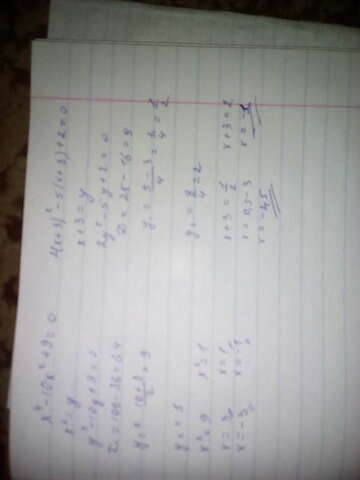 x⁴-10x²+9=0
x²=y
y²-10y+9=0
D=100-36=64
y₁=(10+8)/2=9
y₂=1
x²=9 x²=1
x=3 x=1
x=-3 x=-1
2(x+3)²-5(x+3)+2=0
x+3=y
2y²-5y+2=0
D=25-16=9
y₁=(5-3)/4=2/4=1/2
y₂=8/4=2
x+3=1/2 x+3=2
x=0,5-3 x=-1
x=-2,5